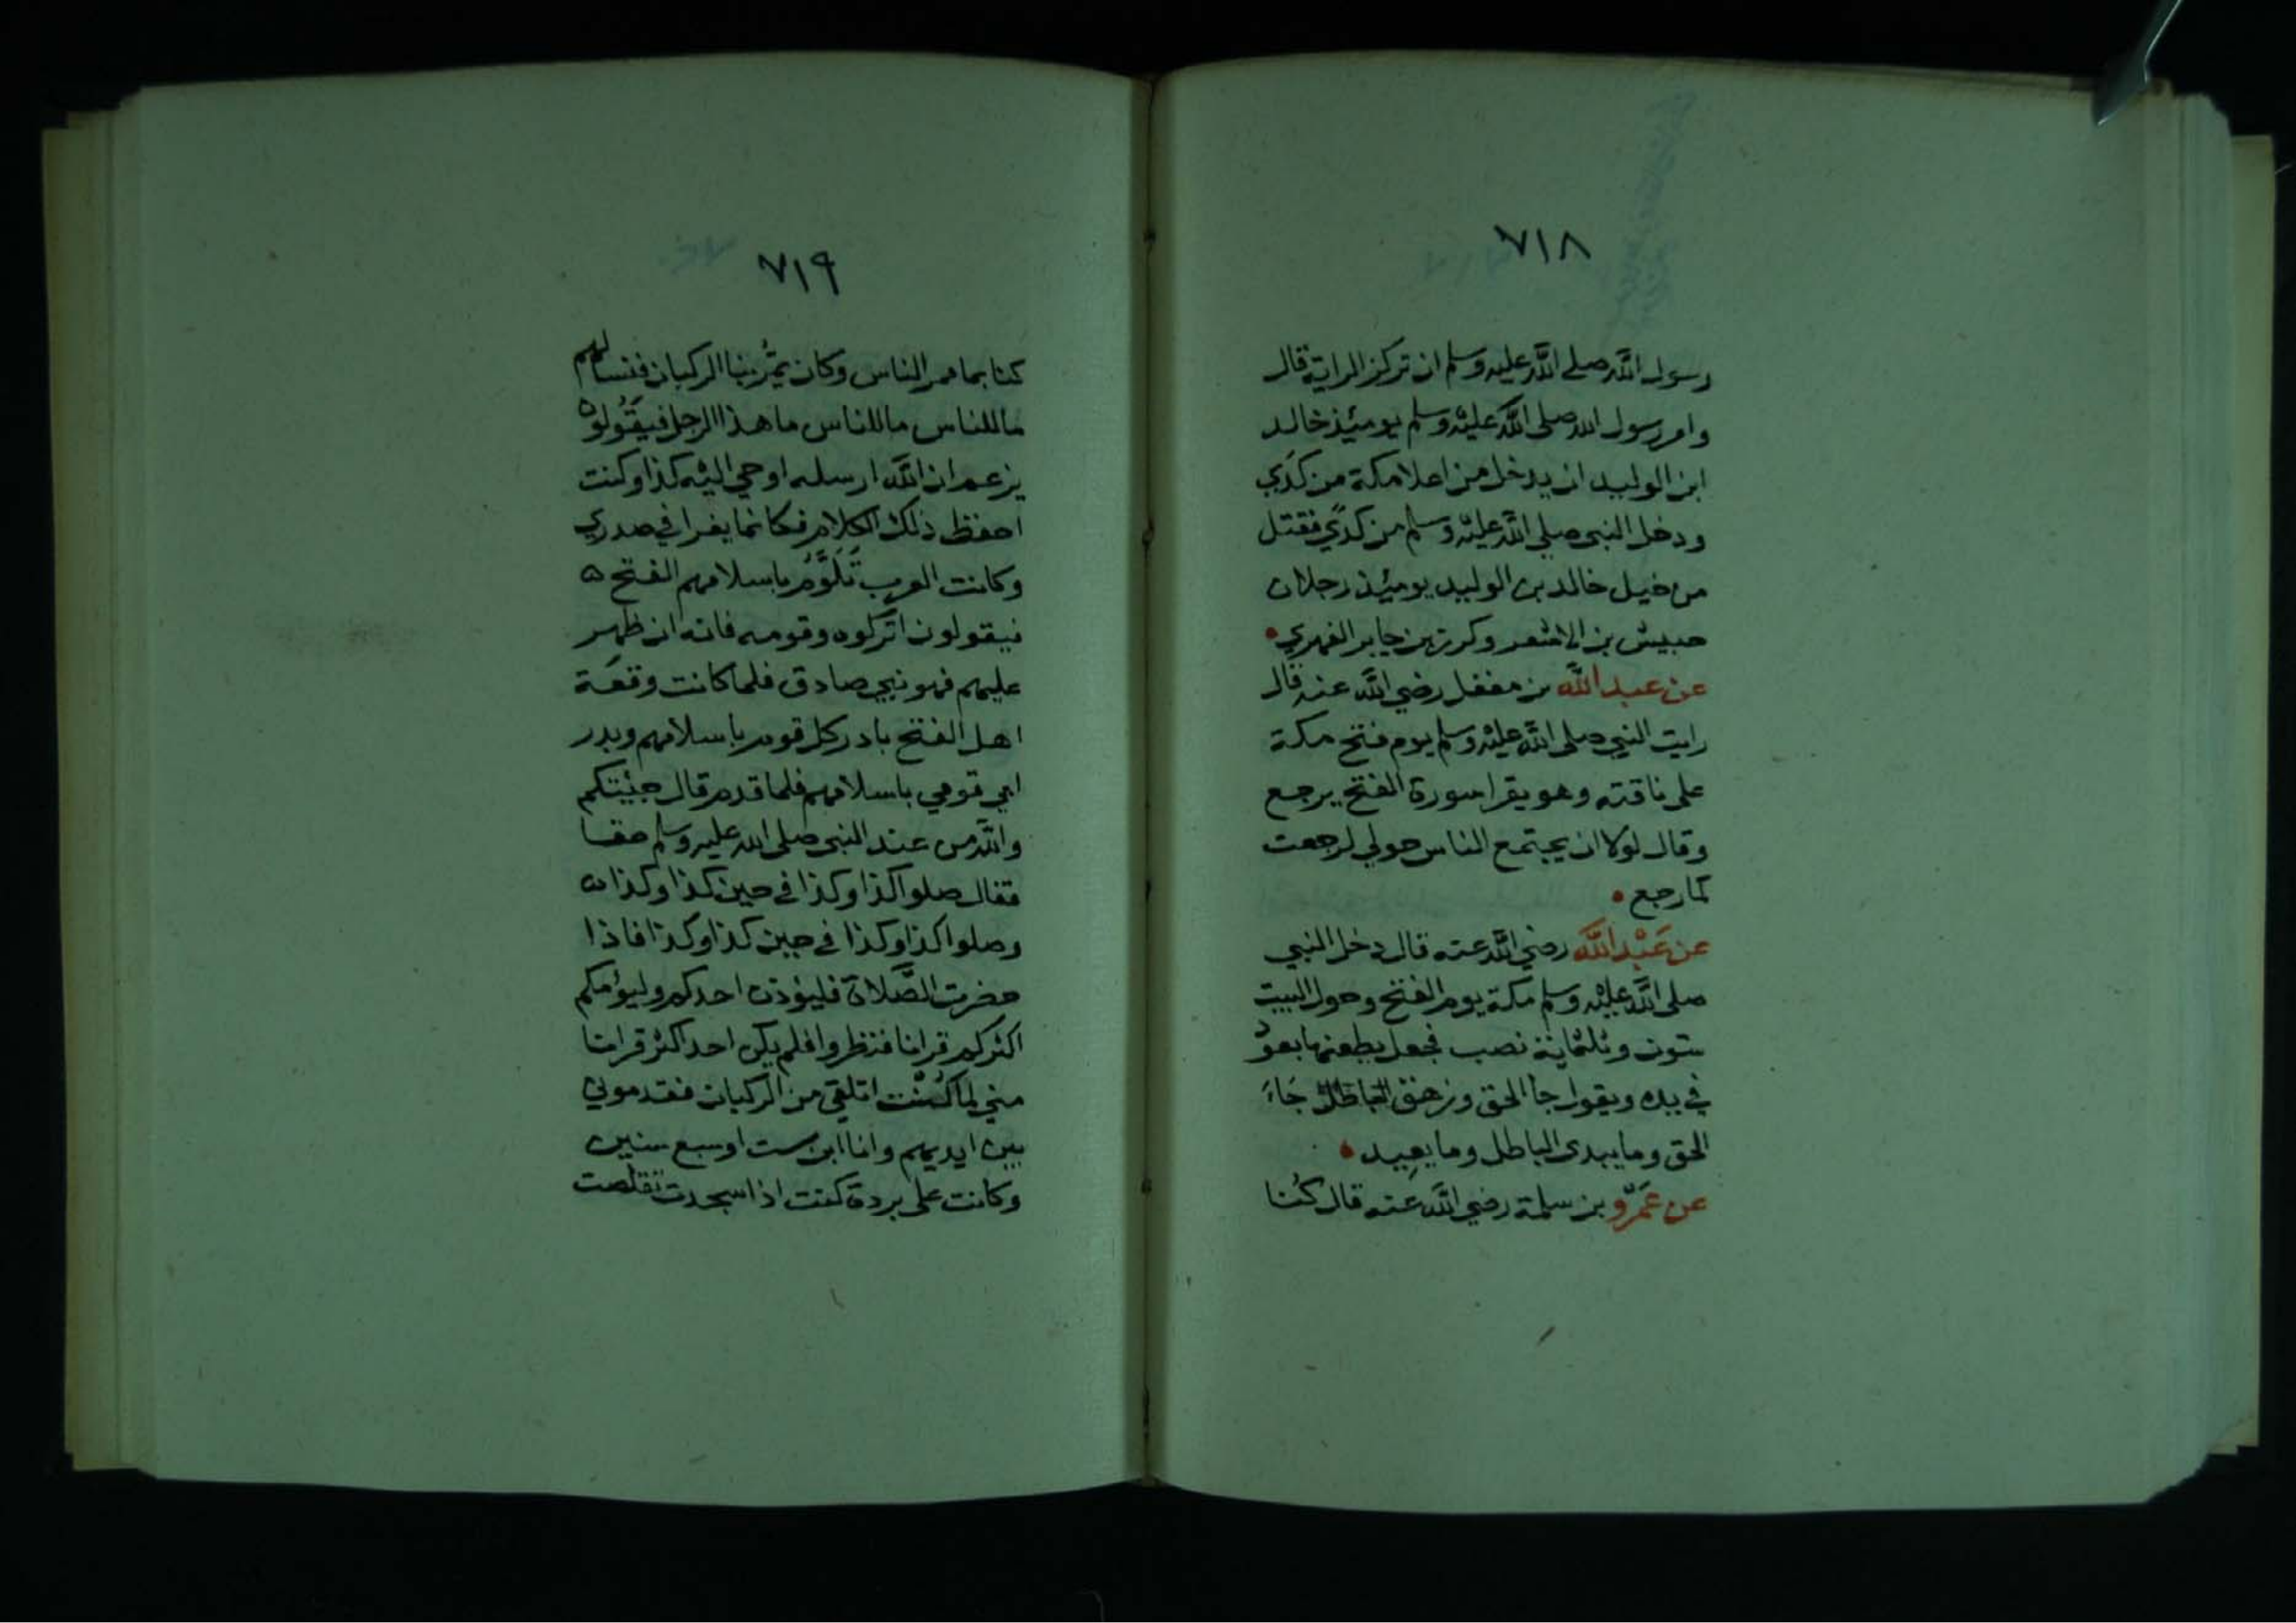 ٧١٨
رسول الله صلى الله عليه وسلم ان تركز الراية قال
وامر رسول الله صلى الله عليْه وسلم يومئيذ خالد
ابن الوليد ان يدخل من اعلا مكة من كَدَي
ودخل النبي صلى الله عليْه وسلم من كدَي فقتل
من خيل خالد بن الوليد يوميئذ رجلان
حبيش بن الاشعر وكرز بن جابر الفهري
عن عبد الله بن مغفل رضي الله عنه قال
رايت النبي صلى الله عليْه وسلم يوم فتح مكة
على ناقته وهو يقرا سورة الفتح يرجع
وقال لولا ان يجتمع الناس حولي لرجعت
كما رجع
عن عَبْد الله رضي الله عنه قال دخل النبي
صلى الله عليْه وسلم مكة يوم الفتح وحول البيت
ستون وثلثماية نصب فجعل يطعنها بعود
في يده ويقول جا الحق وزهق الباطل جَاءَ
الحق وما يبدى الباطل وما يعِيد
عن عَمْرو بن سلمة رضي الله عنه قال كُنا
٧١٩
كنا بما ممر الناس وكان يمُر بنا الركبان فنسالهم
ما للناس ما للناس ما هذا الرجل فيقُولون
يزعم ان الله ارسله اوحي اليْه كذا وكنت
احفظ ذلك الكلام فكانما يغرا في صدري
وكانت العرب تَلَوَّمُ باسلامهم الفتح
فيقولون اتركوه وقومه فانه ان ظهر
عليهم فهو نبي صادق فلما كانت وقعَة
اهل الفتح بادر كل قوم باسلامهم وبدر
ابي قومي باسلامهم فلما قدم قال جيئتكم
والله من عند النبي صلى الله عليه وسلم حقا
فقال صلوا كذا وكذا في حين كذا وكذا
وصلوا كذا وكذا في حين كذا وكذا فاذا
حضرت الصَّلاة فليؤذن احدكم وليؤمكم
اكثركم قرانا فنظروا فلم يكن احد اكثر قرانا
مني لما كُنْت اتلقي من الركبان فقدموني
بين ايديهم وانا ابن ست او سبع سنين
وكانت على بردة كنت اذا سجدت تقلصت